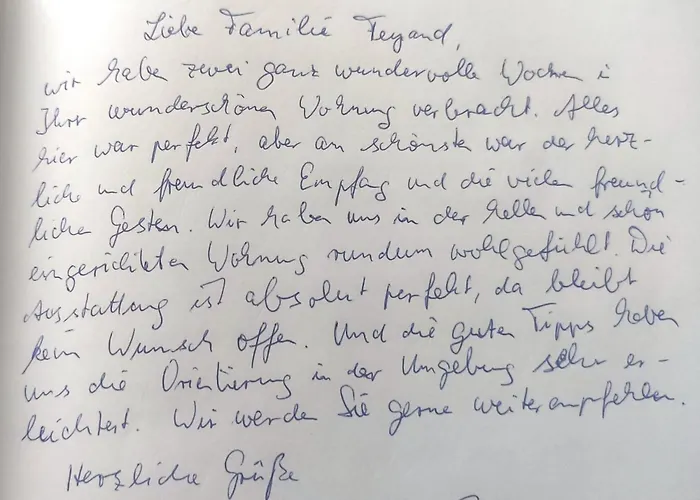 Liebe Familie Feyand,
wir habe zwei ganz wundervolle Wochen i
Ihrer wunderschönen Wohnung verbracht. Alles
hier war perfekt, aber am schönsten war der herz-
liche und freundliche Empfang und die vielen freund-
lichen Gesten. Wir haben uns in der hellen und schön
eingerichteten Wohnung rundum wohlgefühlt. Die
Ausstattung ist absolut perfekt, da bleibt
kein Wunsch offen. Und die guten Tipps haben
uns die Orientierung in der Umgebung sehr er-
leichtert. Wir werden Sie gerne weiterempfehlen.
Herzliche Grüße